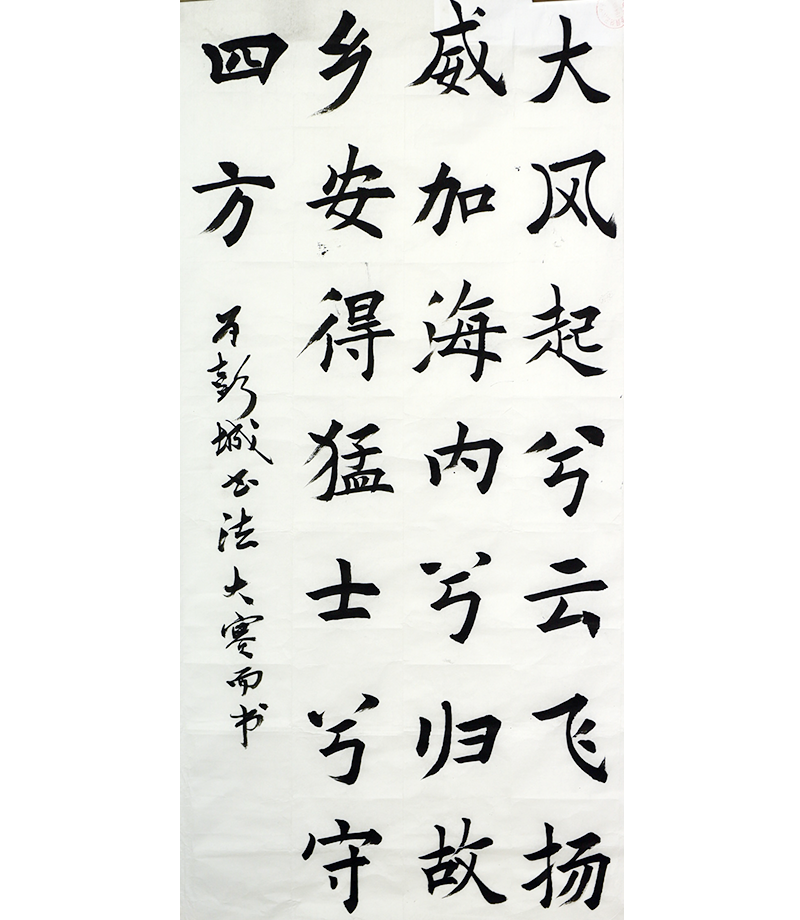 大风起兮云飞扬
威加海内兮归故
乡安得猛士兮守
四方
为彭城书法大赛而书